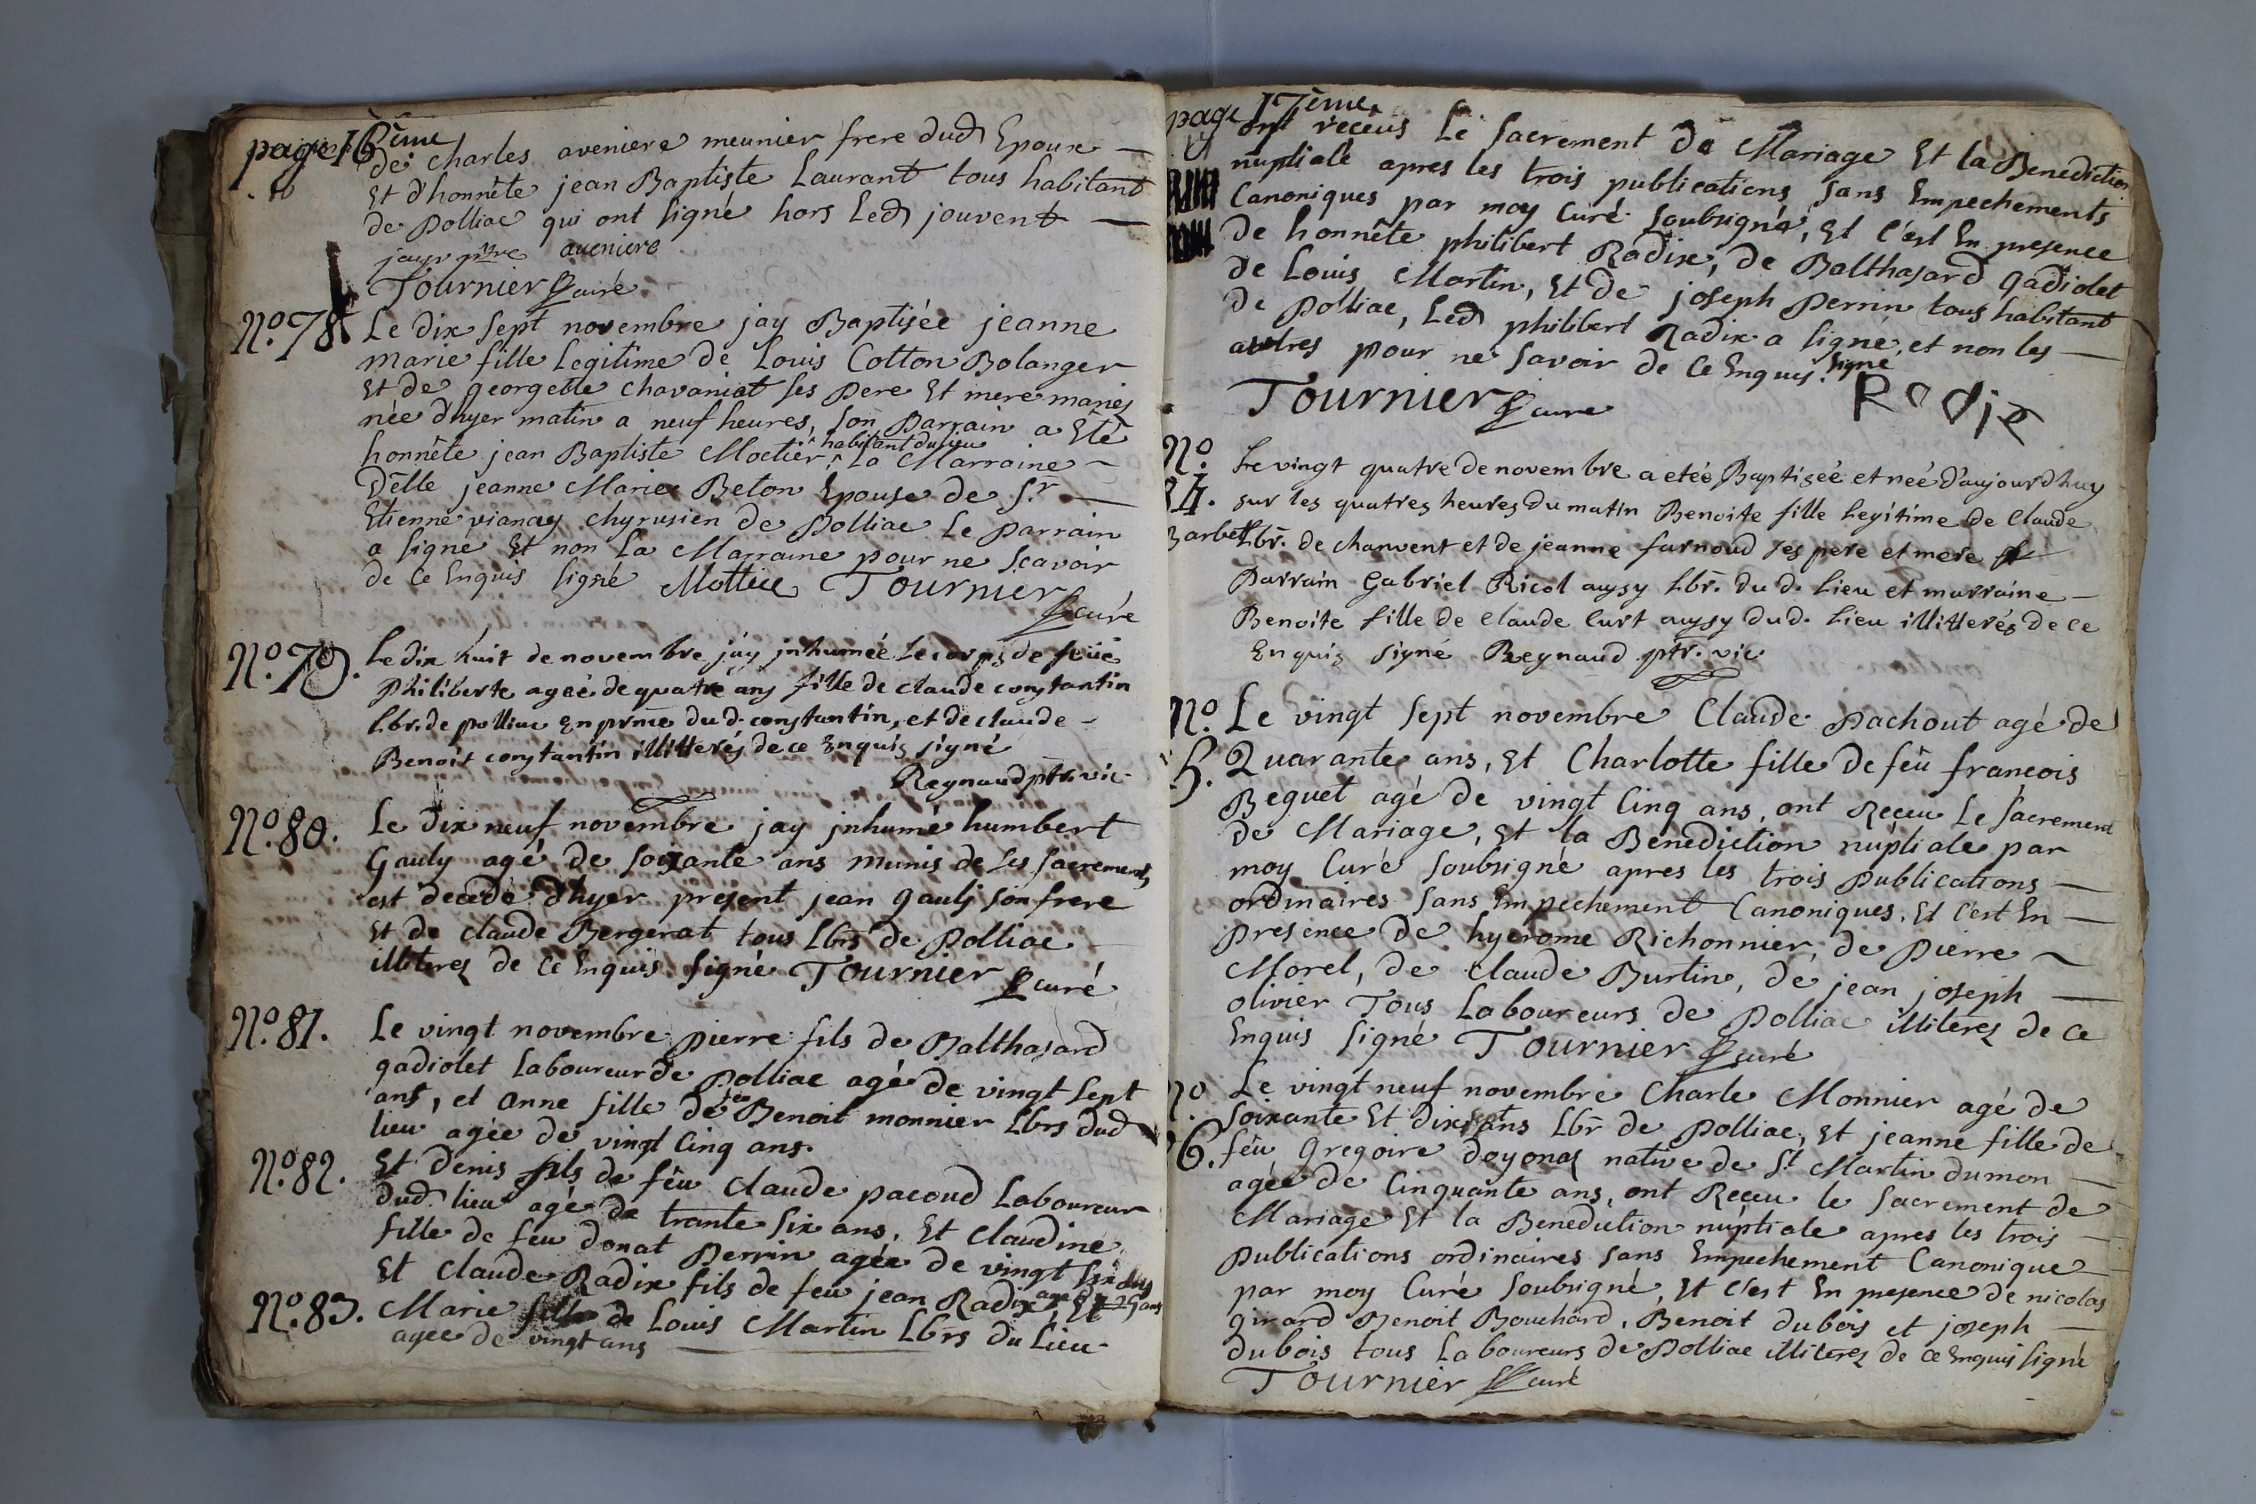 page 16ème
de charles aveniere meunier frere dud Epoux
Et d'honnête jean Baptiste Laurant tous habitant
de Polliac qui ont signé hors Led jouvent
aveniere
Tournier curé
No. 78 Le dix sept novembre jay Baptisée jeanne
marie fille Legitime de Louis Cotton Bolanger
Et de georgette chavaniat ses pere Et mere mariez
née d'hyer matin a neuf heures, son Parrain a Eté
honnête jean Baptiste Moctier, habitant du lieu La Marraine
Délle jeanne Marie Beton Epouse de Sr
Etienne vianay chyrusien de Polliac Le parrain
a signé Et non La Marraine pour ne scavoir
de Ce Enquis signé Mottiee Tournier
curé
No. 79. Le dix huit de novembre jay jnhumée Le corps de feüe
philiberte ageé de quatre ans fille de claude constantin
Lbr. de polliac En prnce du d. constantin, et de claude
Benoit constantin illitterés de ce Enquis signé
Reynaud ptr. vic.
No. 80. Le dix neuf novembre jay jnhumé humbert
Gauly agé de soixante ans munis de ses sacrements
est decedé d'hyer present jean gauly son frere
Et de claude Bergerat tous Lbrs de Polliac
illiterez de Ce Enquis signé Tournier curé
No. 81. Le vingt novembre pierre fils de Balthasard
gadiolet Laboureur de Polliac agé de vingt sept
ans, et anne fille de feu Benoit monnier Lbrs dud
lieu agée de vingt Cinq ans.
No. 82. Et Denis fils de feu Claude pacoud Laboureur
dud lieu agé de trante six ans, Et Claudine
fille de feu donat Perrin agée de vingt six ans
Et Claude Radix fils de feu jean Radix, agé de 25 ans Et
No. 83. Marie fille de Louis Martin Lbrs du Lieu
agee de vingt ans
page 17ème
ont receus Le Sacrement de Mariage Et la Benediction
nuptiale apres les trois publications sans Empechements
Canoniques par moy Curé soubsigné, Et c'est En presence
de honnête philibert Radix, de Balthasard gadiolet
de Louis Martin, Et de joseph perrin tous habitant
de Polliac, Led philibert Radix a signé, et non les
autres pour ne savoir de Ce Enquis. signé
Tournier curé Radix
No. Le vingt quatre de novembre a eteé Baptiseé et neé d'aujourdhuy
84. sur les quatres heures du matin Benoite fille legitime de claude
Barbet Lbr. de chanvent et de jeanne furnoud ses pere et mere
Parrain Gabriel Ricol aussy Lbr. du d. lieu et marraine
Benoite fille de claude curt aussy du d. lieu illitterés de ce
Enquis signé Reynaud ptr. vic.
No. Le vingt sept novembre Claude pachout agé de
5. Quarante ans, Et Charlotte fille de feû françois
Beguet agé de vingt Cinq ans, ont Receu Le sacrement
de Mariage, Et la Benediction nuptiale par
moy Curé soubsigné apres les trois publications
ordinaires sans Empechement Canoniques, Et c'est En
presence de hyerome Richonnier, de pierre
Morel, de claude Burtin, de jean joseph
olivier Tous Laboureurs de Polliac illiterez de Ce
Enquis signé Tournier curé
No Le vingt neuf novembre Charle Monnier agé de
soixante Et dix sept ans Lbr de Polliac, Et jeanne fille de
6. feû gregoire doyonas native de St Martin dumon
agée de Cinquante ans, ont Receu le sacrement de
Mariage Et la Benediction nuptiale apres les trois
publications ordinaires sans Empechement Canonique
par moy Curé soubsigné, Et c'est En presence de nicolas
girard Benoit Bouchard, Benoit dubois et joseph
dubois tous Laboureurs de Polliac illiterez de ce Enquis signé
Tournier curé